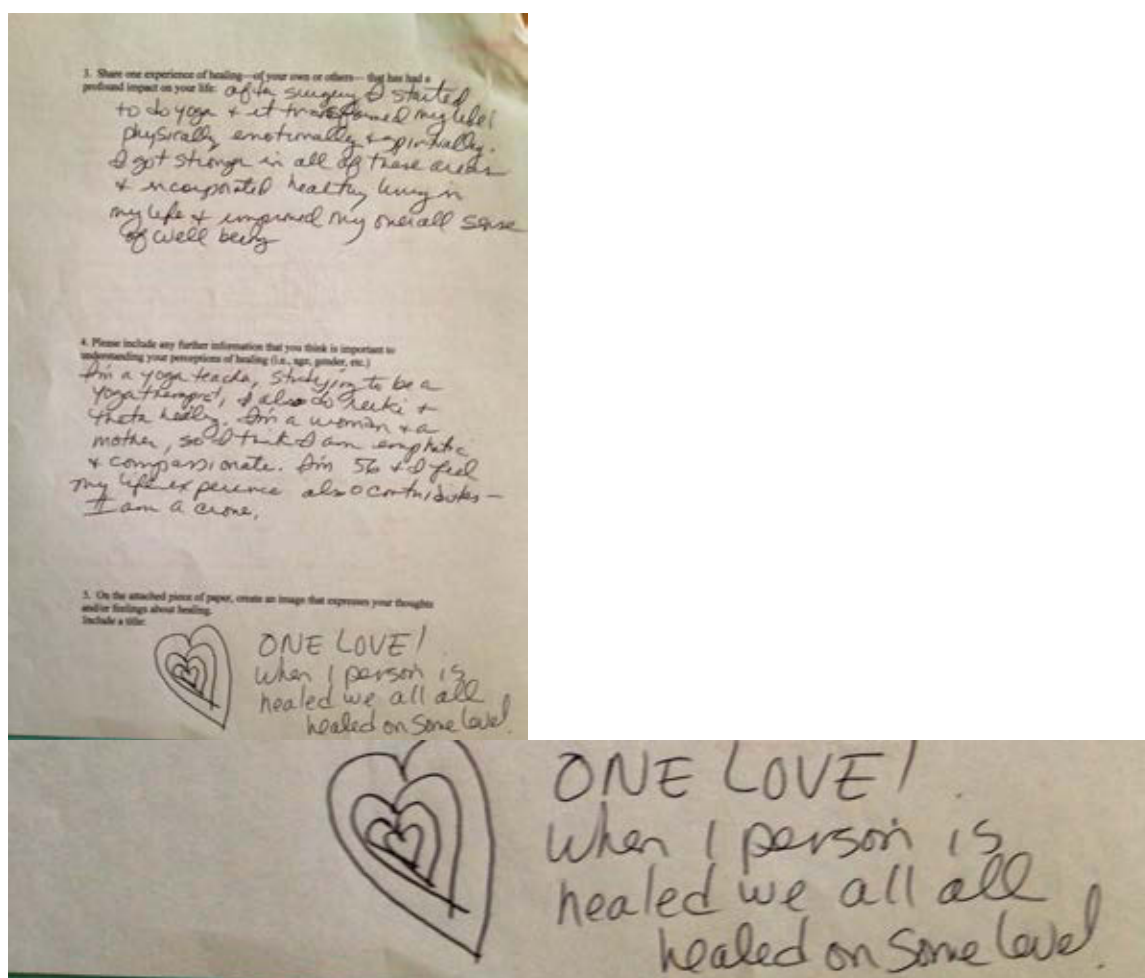 3. Share one experience of healing—of your own or others—that has had a
profound impact on your life: after surgery I started
to do yoga & it transformed my life!
physically emotionally & spiritually.
I got stronger in all of these areas
& incorporated healthy living in
my life & improved my overall sense
of well being
4. Please include any further information that you think is important to
understanding your perceptions of healing (i.e., age, gender, etc.)
I'm a yoga teacher, studying to be a
yoga therapist, I also do reiki &
theta healing. I'm a woman & a
mother, so I think I am emphatic
& compassionate. I'm 56 & I feel
my life experience also contributes –
I am a crone.
5. On the attached piece of paper, create an image that expresses your thoughts
and/or feelings about healing.
Include a title:
ONE LOVE!
When 1 person is
healed we all all
healed on some level.
ONE LOVE!
When 1 person is
healed we all all
healed on some level.